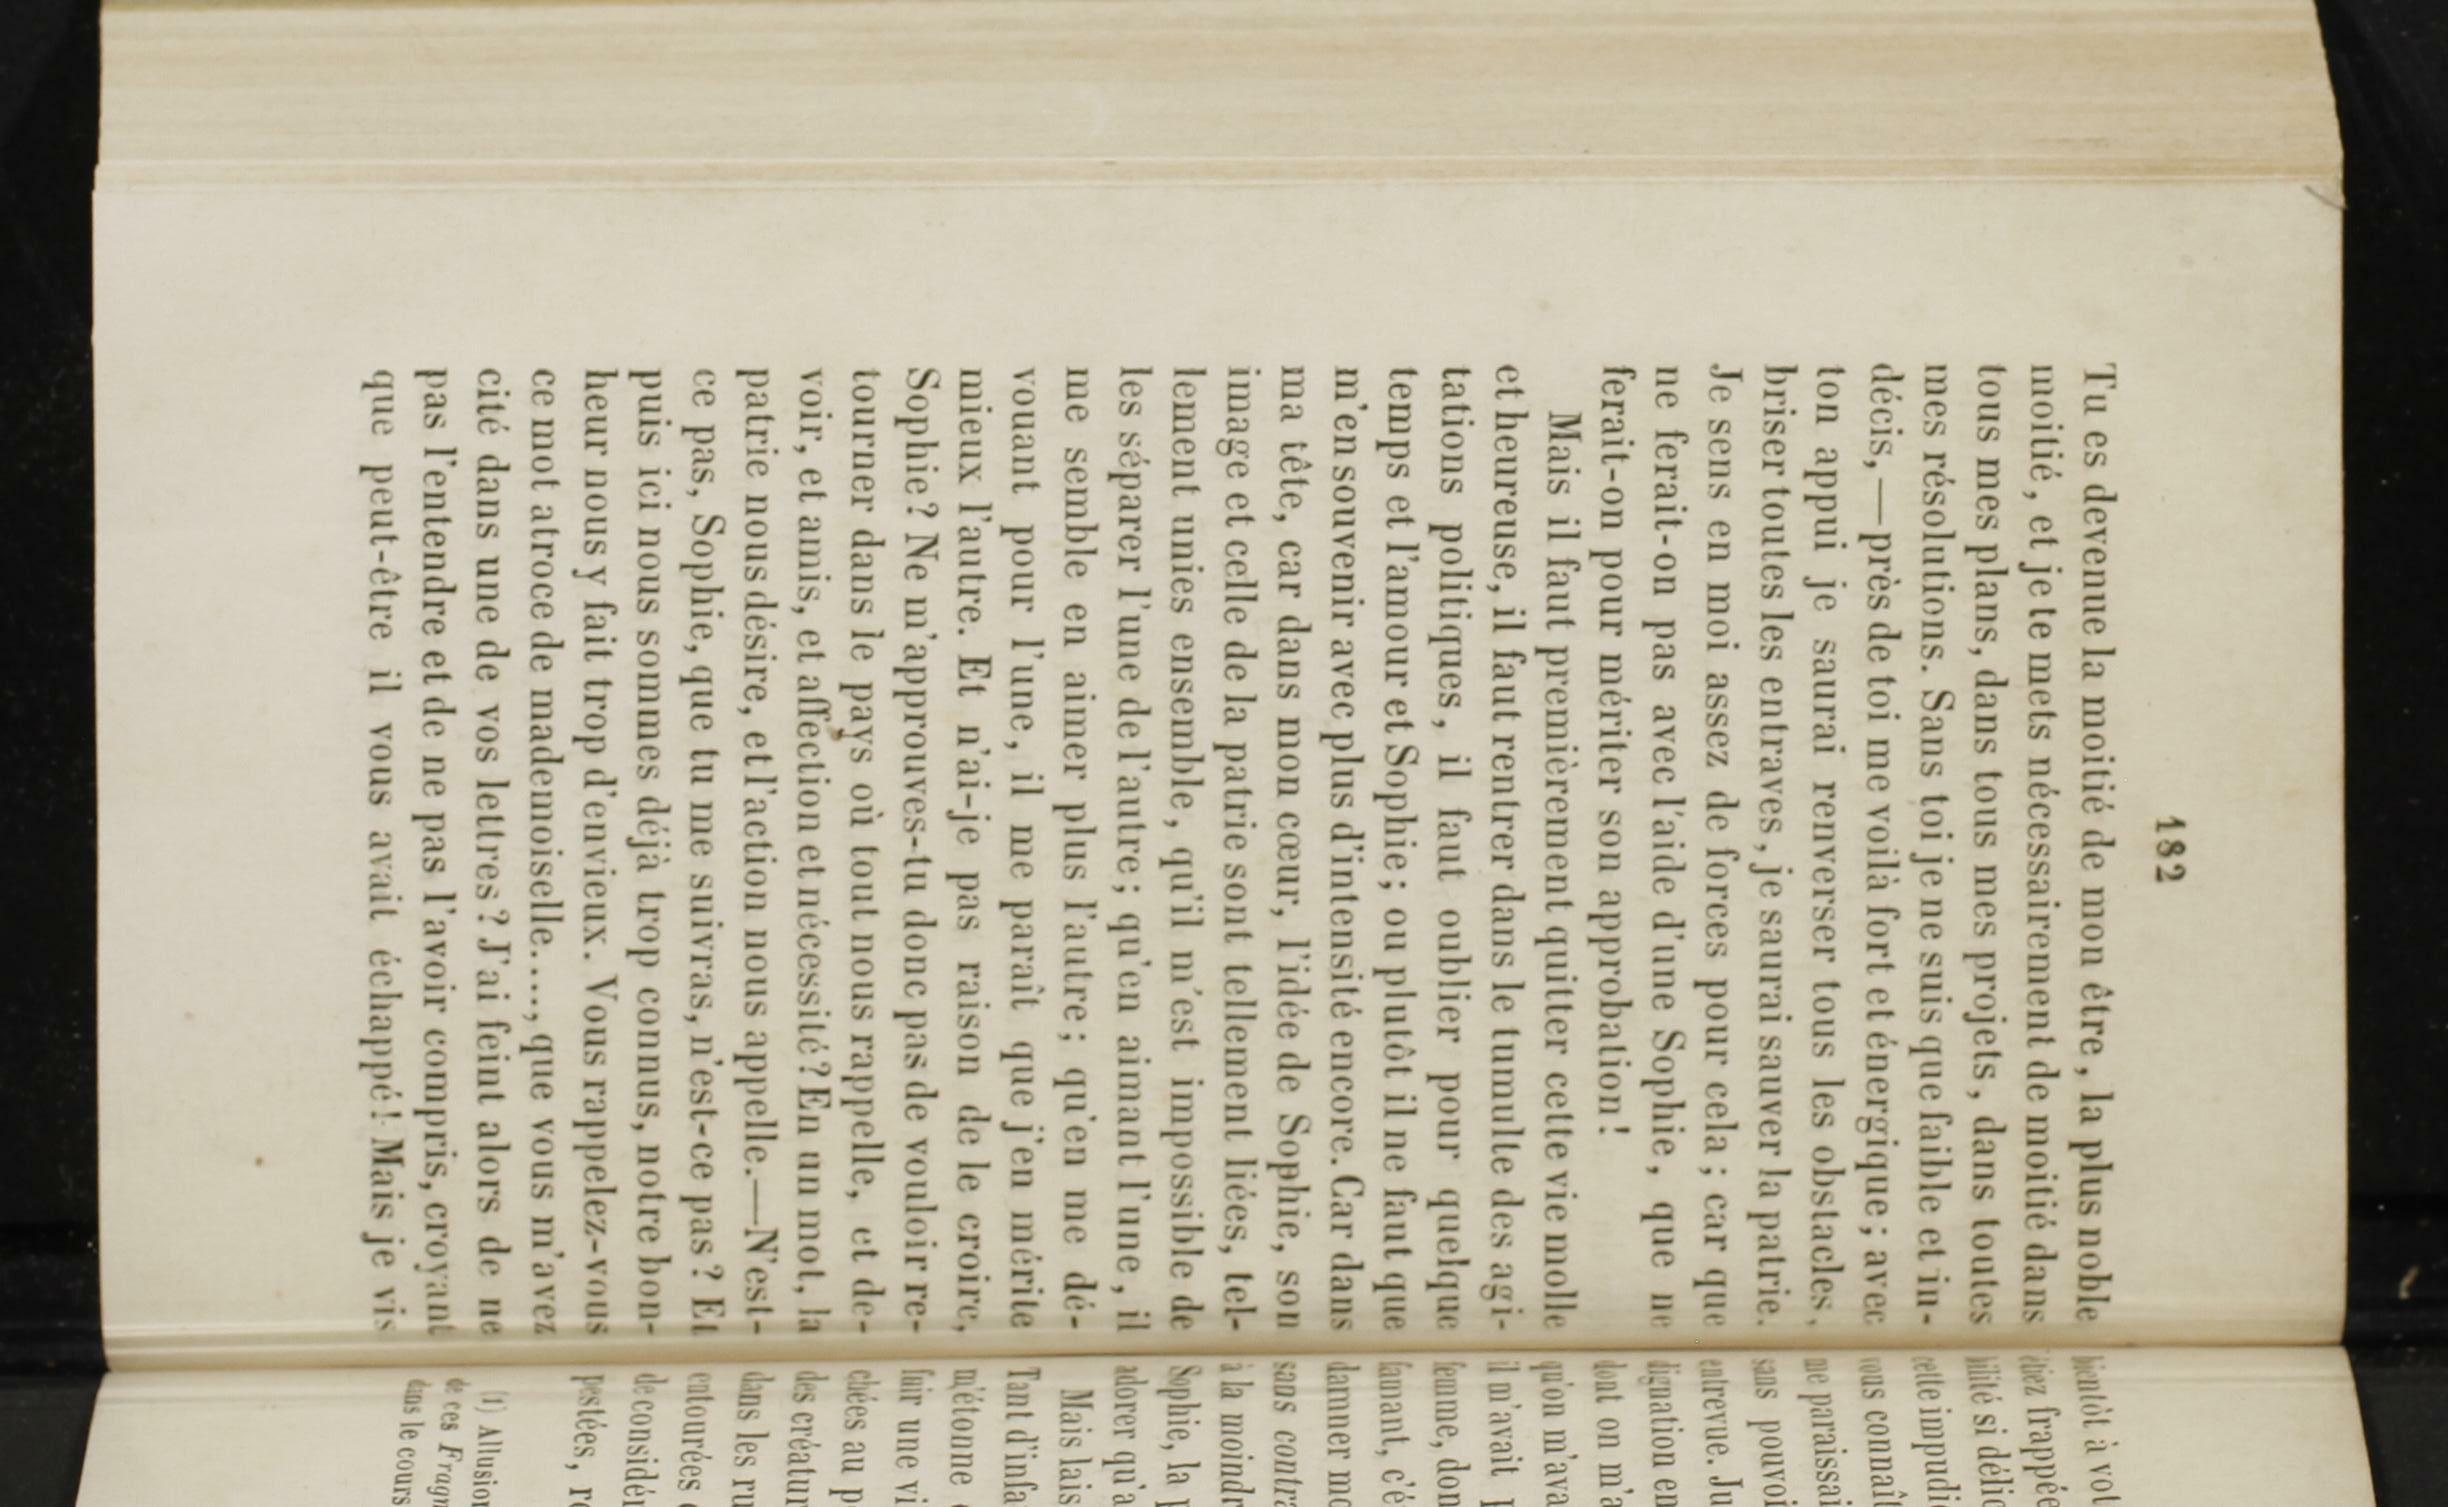 182
Tu es devenue la moitié de mon être, la plus noble
moitié, et je te mets nécessairement de moitié dans
tous mes plans, dans tous mes projets, dans toutes
mes résolutions. Sans toi je ne suis que faible et in-
décis,—près de toi me voilà fort et énergique; avec
ton appui je saurai renverser tous les obstacles,
briser toutes les entraves, je saurai sauver la patrie.
Je sens en moi assez de forces pour cela; car que
ne ferait-on pas avec l'aide d'une Sophie, que ne
ferait-on pour mériter son approbation!
Mais il faut premièrement quitter cette vie molle
et heureuse, il faut rentrer dans le tumulte des agi-
tations politiques, il faut oublier pour quelque
temps et l'amour et Sophie; ou plutôt il ne faut que
m'en souvenir avec plus d'intensité encore. Car dans
ma tête, car dans mon cœur, l'idée de Sophie, son
image et celle de la patrie sont tellement liées, tel-
lement unies ensemble, qu'il m'est impossible de
les séparer l'une de l'autre; qu'en aimant l'une, il
me semble en aimer plus l'autre; qu'en me dé-
vouant pour l'une, il me paraît que j'en mérite
mieux l'autre. Et n'ai-je pas raison de le croire,
Sophie? Ne m'approuves-tu donc pas de vouloir re-
tourner dans le pays où tout nous rappelle, et de-
voir, et amis, et affection et nécessité? En un mot, la
patrie nous désire, et l'action nous appelle.—N'est-
ce pas, Sophie, que tu me suivras, n'est-ce pas? Et
puis ici nous sommes déjà trop connus, notre bon-
heur nous y fait trop d'envieux. Vous rappelez-vous
ce mot atroce de mademoiselle...., que vous m'avez
cité dans une de vos lettres? J'ai feint alors de ne
pas l'entendre et de ne pas l'avoir compris, croyant
que peut-être il vous avait échappé! Mais je vis
bientôt à vot
étiez frappée
bilité si délic
cette impudi
vous connaît
me paraissai
sans pouvoi
entrevue. Ju
dignation en
dont on m'a
qu'on m'ava
il m'avait p
femme, don
famant, c'é
damner mo
sans contra
à la moindr
Sophie, la p
adorer qu'a
Mais lais
Tant d'infa
m'étonne
fuir une vi
chées au p
des créatur
dans les ru
entourées
de considér
pestées, re
(1) Allusion
de ces Fragm
dans le cours